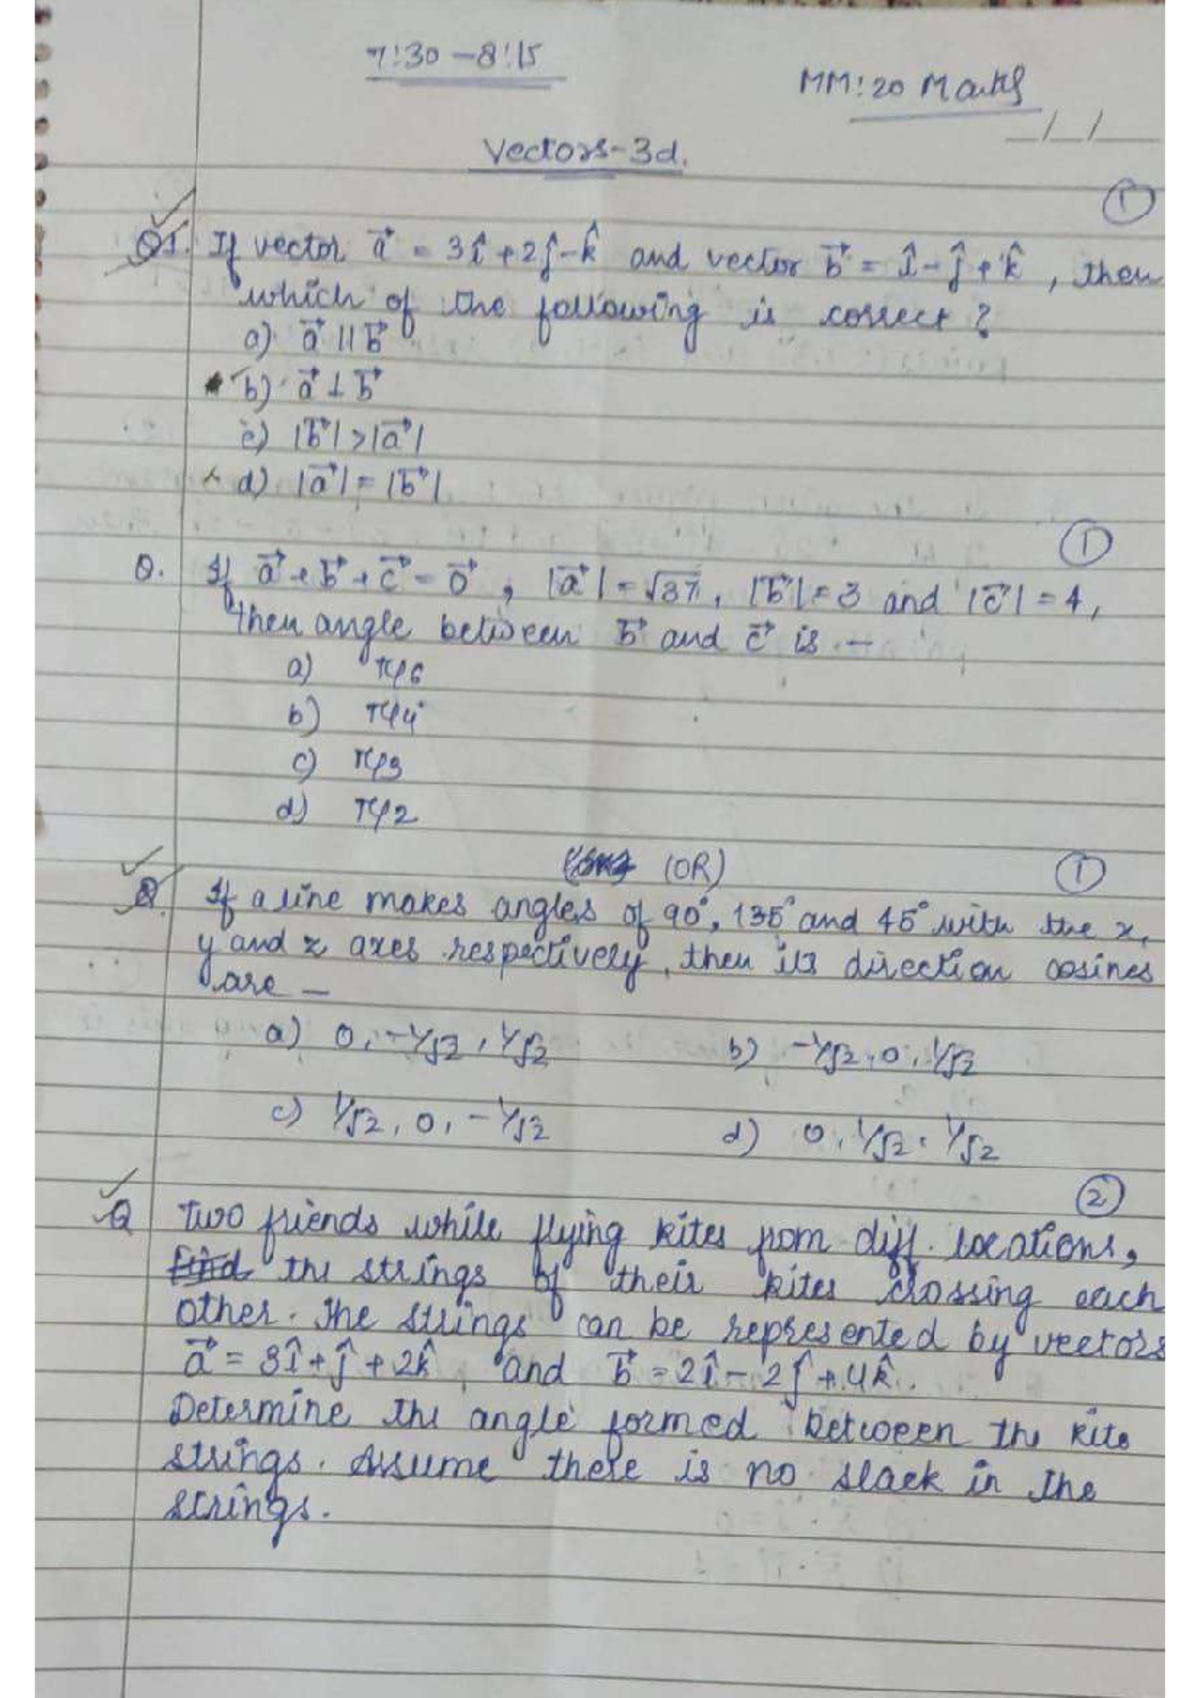 7:30 - 8:15
MM: 20 Marks
_/_/_
Vectors-3d.
①
Q1. If vector a⃗ = 3î + 2ĵ - k̂ and vector b⃗ = î - ĵ + k̂, then
which of the following is correct?
a) a⃗ || b⃗
b) a⃗ ⊥ b⃗
c) |b⃗| > |a⃗|
d) |a⃗| = |b⃗|
①
Q. If a⃗ + b⃗ + c⃗ = 0⃗, |a⃗| = √37, |b⃗| = 3 and |c⃗| = 4,
then angle between b⃗ and c⃗ is -
a) π/6
b) π/4
c) π/3
d) π/2
(OR)
①
Q. If a line makes angles of 90°, 135° and 45° with the x,
y and z axes respectively, then its direction cosines
are -
a) 0, -1/√2, 1/√2 b) -1/√2, 0, 1/√2
c) 1/√2, 0, -1/√2 d) 0, 1/√2, 1/√2
②
Q Two friends while flying kites from diff. locations,
find the strings of their kites crossing each
other. The strings can be represented by vectors
a⃗ = 3î + ĵ + 2k̂ and b⃗ = 2î - 2ĵ + 4k̂.
Determine the angle formed between the kite
strings. Assume there is no slack in the
strings.